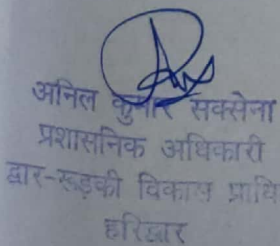 अनिल कुमार सक्सेना
प्रशासनिक अधिकारी
द्वार-रूड़की विकास प्राधि
हरिद्वार